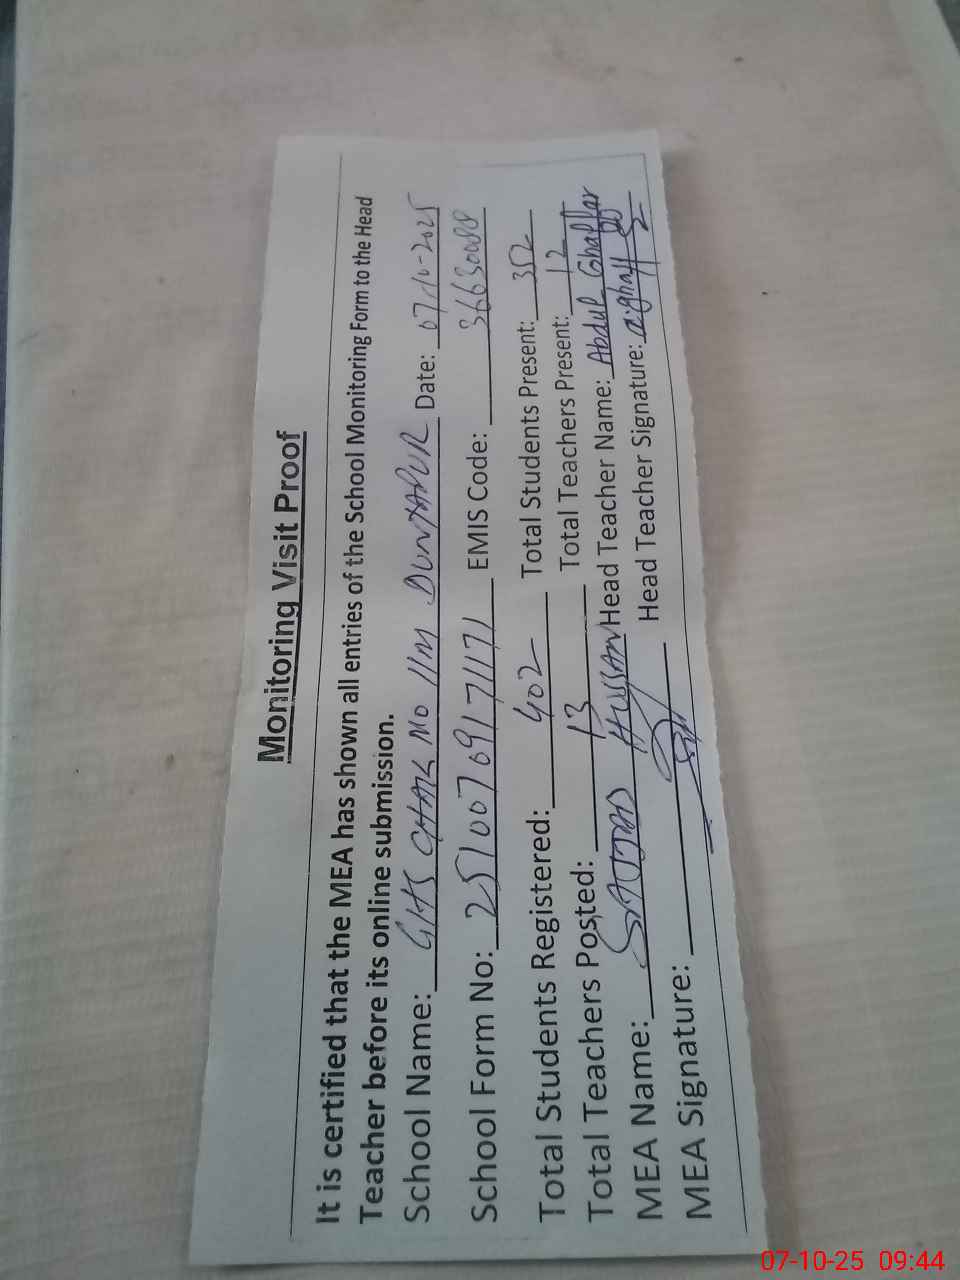 Monitoring Visit Proof
It is certified that the MEA has shown all entries of the School Monitoring Form to the Head
Teacher before its online submission.
School Name: GHS CHAK NO 11M DUNYAPUR Date: 07-10-2025
School Form No: 25100769171171 EMIS Code: 36630088
Total Students Registered: 402 Total Students Present: 352
Total Teachers Posted: 13 Total Teachers Present: 12
MEA Name: SAJJAD HUSSAIN Head Teacher Name: Abdul Ghaffar
MEA Signature: Head Teacher Signature:
07-10-25 09:44